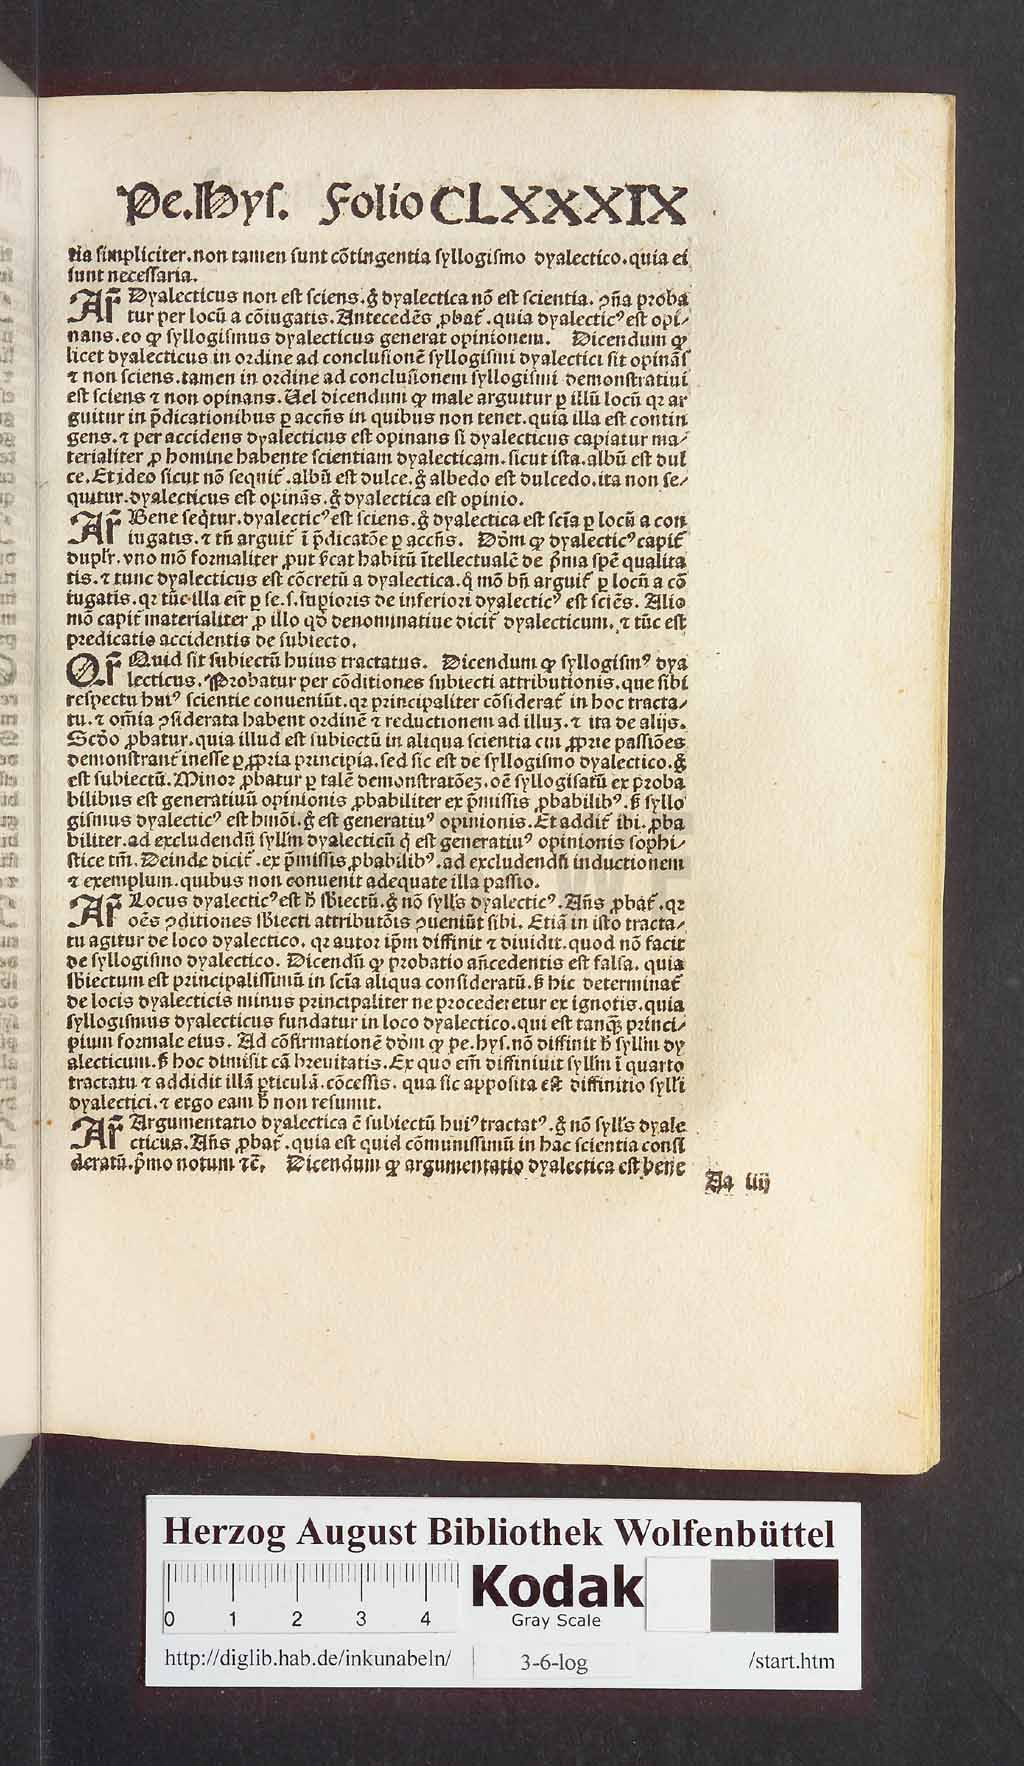 Pe.Hys. Folio CLXXXIX
tia simpliciter.non tamen sunt cõtingentia syllogismo dyalectico.quia ei
sunt necessaria.
Arꝰ Dyalecticus non est sciens.g̊ dyalectica nõ est scientia. ꝯña proba
tur per locũ a cõiugatis. Antecedẽs ꝓbat᷑.quia dyalecticꝰ est opi⸗
nans.eo ꝙ syllogismus dyalecticus generat opinionem. Dicendum ꝙ
licet dyalecticus in ordine ad conclusionẽ syllogismi dyalectici sit opinãs
⁊ non sciens.tamen in ordine ad conclusionem syllogismi demonstratiui
est sciens ⁊ non opinans. Uel dicendum ꝙ male arguitur ꝑ illũ locũ qꝛ ar
guitur in p̃dicationibus ꝑ accñs in quibus non tenet.quia illa est contin
gens.⁊ per accidens dyalecticus est opinans si dyalecticus capiatur ma⸗
terialiter ꝓ homine habente scientiam dyalecticam.sicut ista.albũ est dul
ce.Et ideo sicut nõ sequit᷑.albũ est dulce.g̊ albedo est dulcedo.ita non se⸗
quitur.dyalecticus est opinãs.g̊ dyalectica est opinio.
Ar᷑ Bene seq̇tur.dyalecticꝰ est sciens.g̊ dyalectica est scĩa ꝑ locũ a con
iugatis.⁊ tñ arguit᷑ ĩ p̃dicatõe ꝑ accñs. Dõm ꝙ dyalecticꝰ capit᷑
duplr̃.vno mõ formaliter ꝓut v̾cat habitũ ĩtellectualẽ de p̃ma spẽ qualita
tis.⁊ tunc dyalecticus est cõcretũ a dyalectica.q̇ mõ bñ arguit᷑ ꝑ locũ a cõ
iugatis.qꝛ tũc illa eĩt ꝑ se.s.supioris de inferiori dyalecticꝰ est sciẽs. Alio
mõ capit᷑ materialiter ꝓ illo qd̾ denominatiue dicit᷑ dyalecticum.⁊ tũc est
predicatio accidentis de subiecto.
Qr᷑ Quid sit subiectũ huius tractatus. Dicendum ꝙ syllogismꝰ dya
lecticus. Probatur per cõditiones subiecti attributionis.que sibi
respectu huiꝰ scientie conueniũt.qꝛ principaliter cõsiderat᷑ in hoc tracta⸗
tu.⁊ om̃ia ꝯsiderata habent ordinẽ ⁊ reductionem ad illuꝫ.⁊ ita de alijs.
Scd̾o ꝓbatur.quia illud est subiectũ in aliqua scientia cui ꝓprie passiões
demonstrant᷑ inesse ꝑ ꝓpria principia.sed sic est de syllogismo dyalectico.g̊
est subiectũ.Minor ꝓbatur ꝑ talẽ demonstratõeꝫ.oẽ syllogisatũ ex proba
bilibus est generatiuũ opinionis ꝓbabiliter ex p̃missis ꝓbabilibꝰ.ß syllo
gismus dyalecticꝰ est hmõi.g̊ est generatiuꝰ opinionis. Et addit᷑ ibi.ꝓba
biliter.ad excludendũ syllm̃ dyalecticũ q̇ est generatiuꝰ opinionis sophi⸗
stice tm̃. Deinde dicit᷑.ex p̃missis ꝓbabilibꝰ.ad excludendũ inductionem
⁊ exemplum.quibus non conuenit adequate illa passio.
Ar᷑ Locus dyalecticꝰ est h̾ sb̾iectũ.g̊ nõ sylls̃ dyalecticꝰ. Añs ꝓbat᷑.qꝛ
oẽs ꝯditiones sb̾iecti attributõis ꝯueniũt sibi. Etiã in isto tracta⸗
tu agitur de loco dyalectico.qꝛ autor ip̃m diffinit ⁊ diuidit.quod nõ facit
de syllogismo dyalectico. Dicendũ ꝙ probatio añcedentis est falsa. quia
sb̾iectum est principalissimũ in scĩa aliqua consideratũ.ß hic determinat᷑
de locis dyalecticis minus principaliter ne procederetur ex ignotis.quia
syllogismus dyalecticus fundatur in loco dyalectico.qui est tanꝙ̃ princi⸗
pium formale eius. Ad cõfirmationẽ dõm ꝙ pe.hys.nõ diffinit h̾ syllm̃ dy
alecticum.ß hoc dimisit cã breuitatis. Ex quo em̃ diffiniuit syllm̃ ĩ quarto
tractatu ⁊ addidit illã ꝑticulã.cõcessis. qua sic apposita est diffinitio sylli̾
dyalectici.⁊ ergo eam h̾ non resumit.
Ar᷑ Argumentatio dyalectica ẽ subiectũ huiꝰ tractatꝰ.g̊ nõ sylls̃ dyale
cticus. Añs ꝓbat᷑.quia est quid cõmunissimũ in hac scientia consi
deratũ.p̃mo notum ⁊c̃. Dicendum ꝙ argumentatio dyalectica est bene
Aa iiij
Herzog August Bibliothek Wolfenbüttel
0 1 2 3 4
Kodak
Gray Scale
http://diglib.hab.de/inkunabeln/ 3-6-log /start.htm